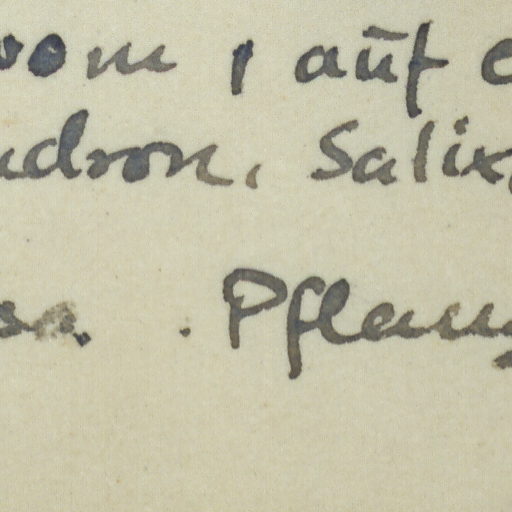 oom, auf
ndron, Salix,
sa. . Pflanz